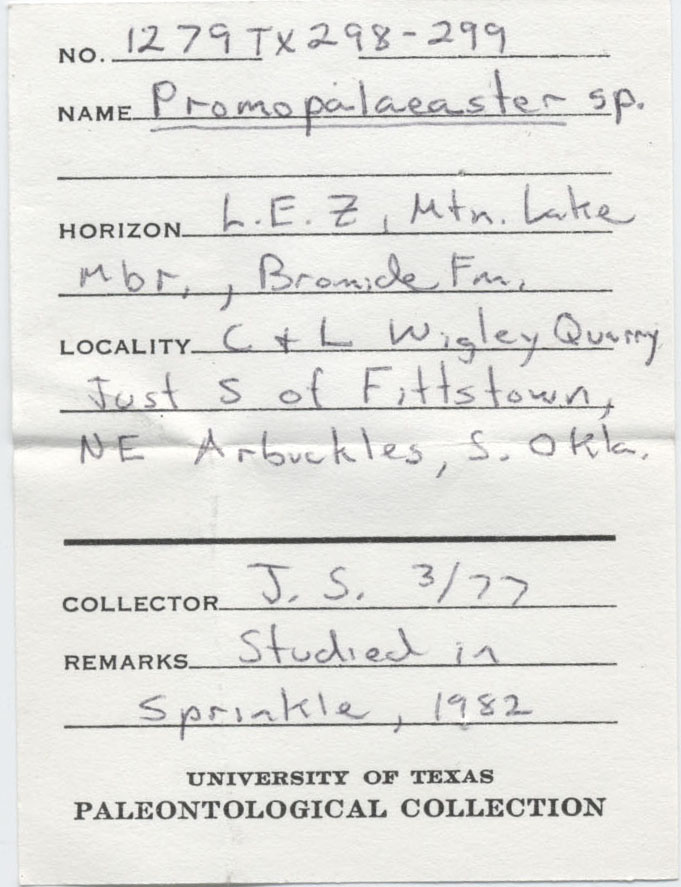 NO. 1279TX298-299
NAME Promopalaeaster sp.
HORIZON L.E.Z, Mtn. Lake
Mbr., Bromide Fm.
LOCALITY C + L Wigley Quarry
Just S of Fittstown,
NE Arbuckles, S. Okla.
COLLECTOR J.S. 3/77
REMARKS Studied in
Sprinkle, 1982
UNIVERSITY OF TEXAS
PALEONTOLOGICAL COLLECTION